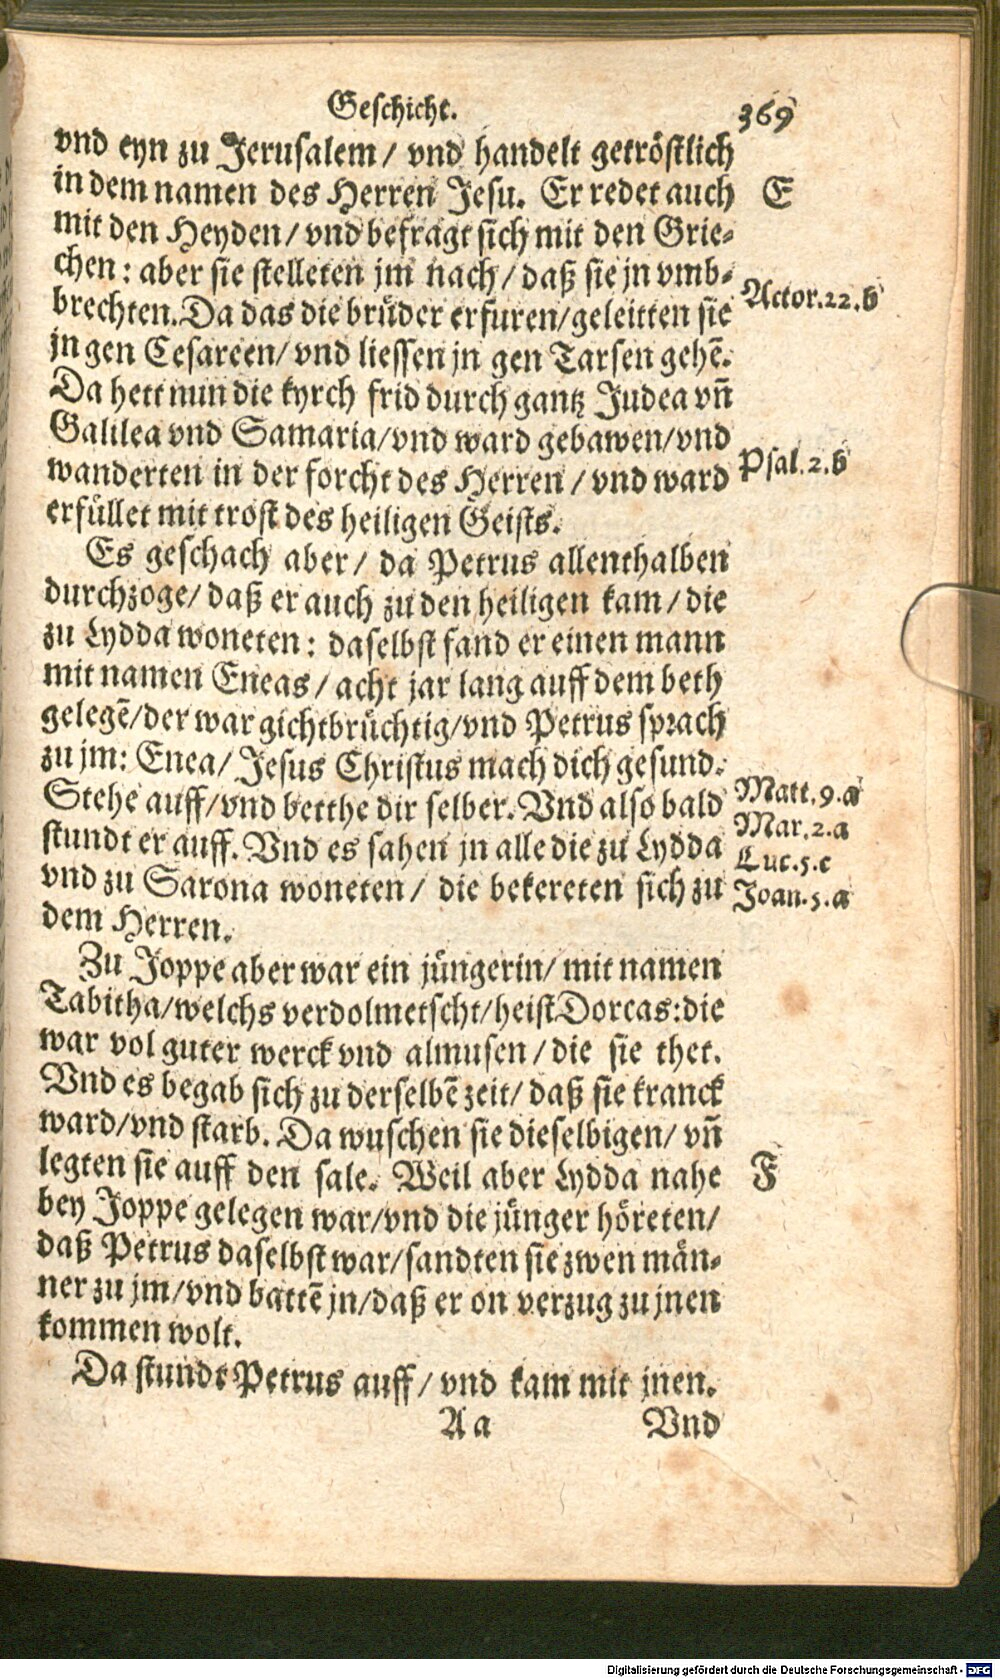 Geschicht. 369
vnd eyn zu Jerusalem/ vnd handelt getröstlich
in dem namen des Herren Jesu. Er redet auch E
mit den Heyden/ vnd befragt sich mit den Grie-
chen: aber sie stelleten jm nach/ daß sie jn vmb-
brechten. Da das die brüder erfuren/ geleitten sie Actor.22.b
jn gen Cesareen/ vnd liessen jn gen Tarsen gehē.
Da hett nun die kyrch frid durch gantz Judea vñ
Galilea vnd Samaria/ vnd ward gebawen/ vnd
wanderten in der forcht des Herren/ vnd ward Psal.2.b
erfüllet mit trost des heiligen Geists.
Es geschach aber/ da Petrus allenthalben
durchzoge/ daß er auch zu den heiligen kam/ die
zu Lydda woneten: daselbst fand er einen mann
mit namen Eneas/ acht jar lang auff dem beth
gelegē/ der war gichtbrüchtig/ vnd Petrus sprach
zu jm: Enea/ Jesus Christus mach dich gesund.
Stehe auff/ vnd betthe dir selber. Vnd also bald Matt.9.a
stundt er auff. Vnd es sahen jn alle die zu Lydda Mar.2.a
Luc.5.c
vnd zu Sarona woneten/ die bekereten sich zu Joan.5.a
dem Herren.
Zu Joppe aber war ein jüngerin/ mit namen
Tabitha/ welchs verdolmetscht/ heist Dorcas: die
war vol guter werck vnd almusen/ die sie thet.
Vnd es begab sich zu derselbē zeit/ daß sie kranck
ward/ vnd starb. Da wuschen sie dieselbigen/ vñ
legten sie auff den sale. Weil aber Lydda nahe F
bey Joppe gelegen war/ vnd die jünger höreten/
daß Petrus daselbst war/ sandten sie zwen män-
ner zu jm/ vnd battē jn/ daß er on verzug zu jnen
kommen wolt.
Da stundt Petrus auff/ vnd kam mit jnen.
Aa Vnd
Digitalisierung gefördert durch die Deutsche Forschungsgemeinschaft - DFG